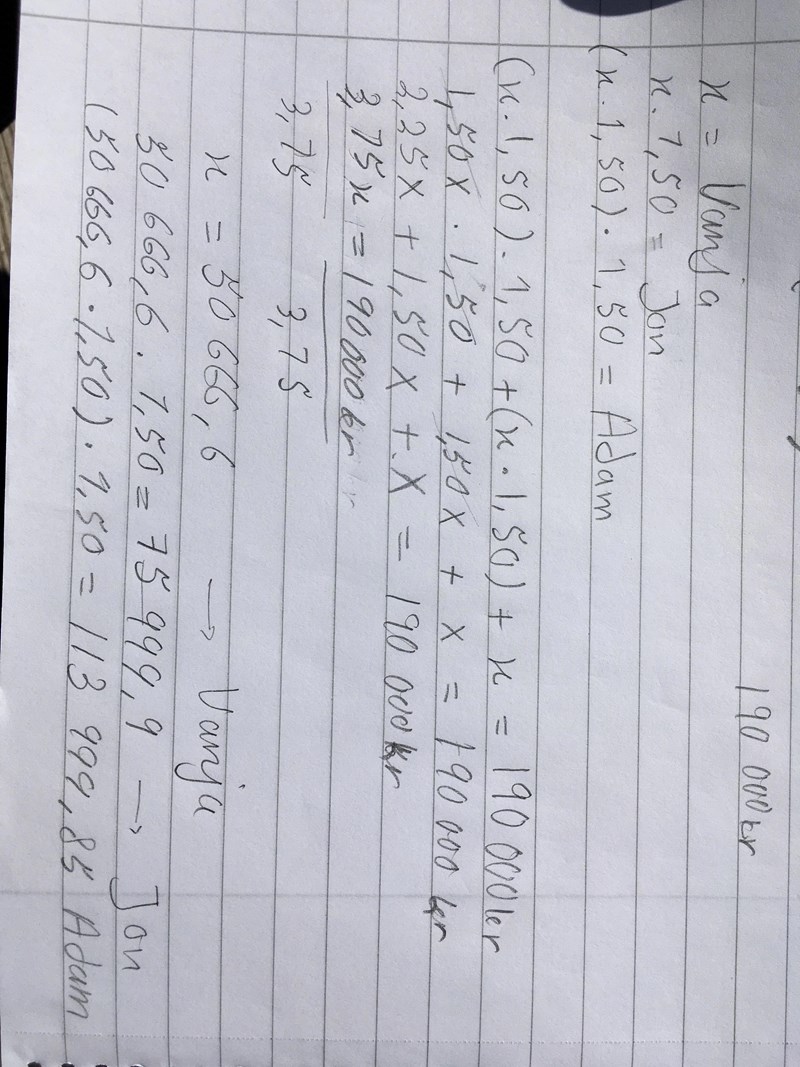 190 000kr
x = Vanja
x · 1,50 = Jon
(x · 1,50) · 1,50 = Adam
(x · 1,50) · 1,50 + (x · 1,50) + x = 190 000kr
1,50x · 1,50 + 1,50x + x = 190 000 kr
2,25x + 1,50x + x = 190 000kr
3,75x = 190000kr
3,75 3,75
x = 50 666,6 → Vanja
50 666,6 · 1,50 = 75 999,9 → Jon
(50 666,6 · 1,50) · 1,50 = 113 999,85 Adam